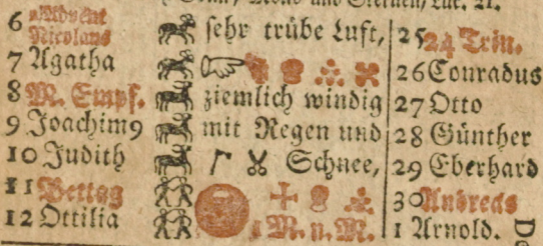 Sonn, Mond und Sternen, Luc. 21.
6 2 Advent
Nicolaus
sehr trübe Luft,
25 24 Trin.
7 Agatha
26 Conradus
8 M. Empf.
ziemlich windig
27 Otto
9 Joachim9
mit Regen und
28 Günther
10 Judith
Schnee,
29 Eberhard
11 Bettag
30 Andreas
12 Ottilia
M. n. M.
1 Arnold.